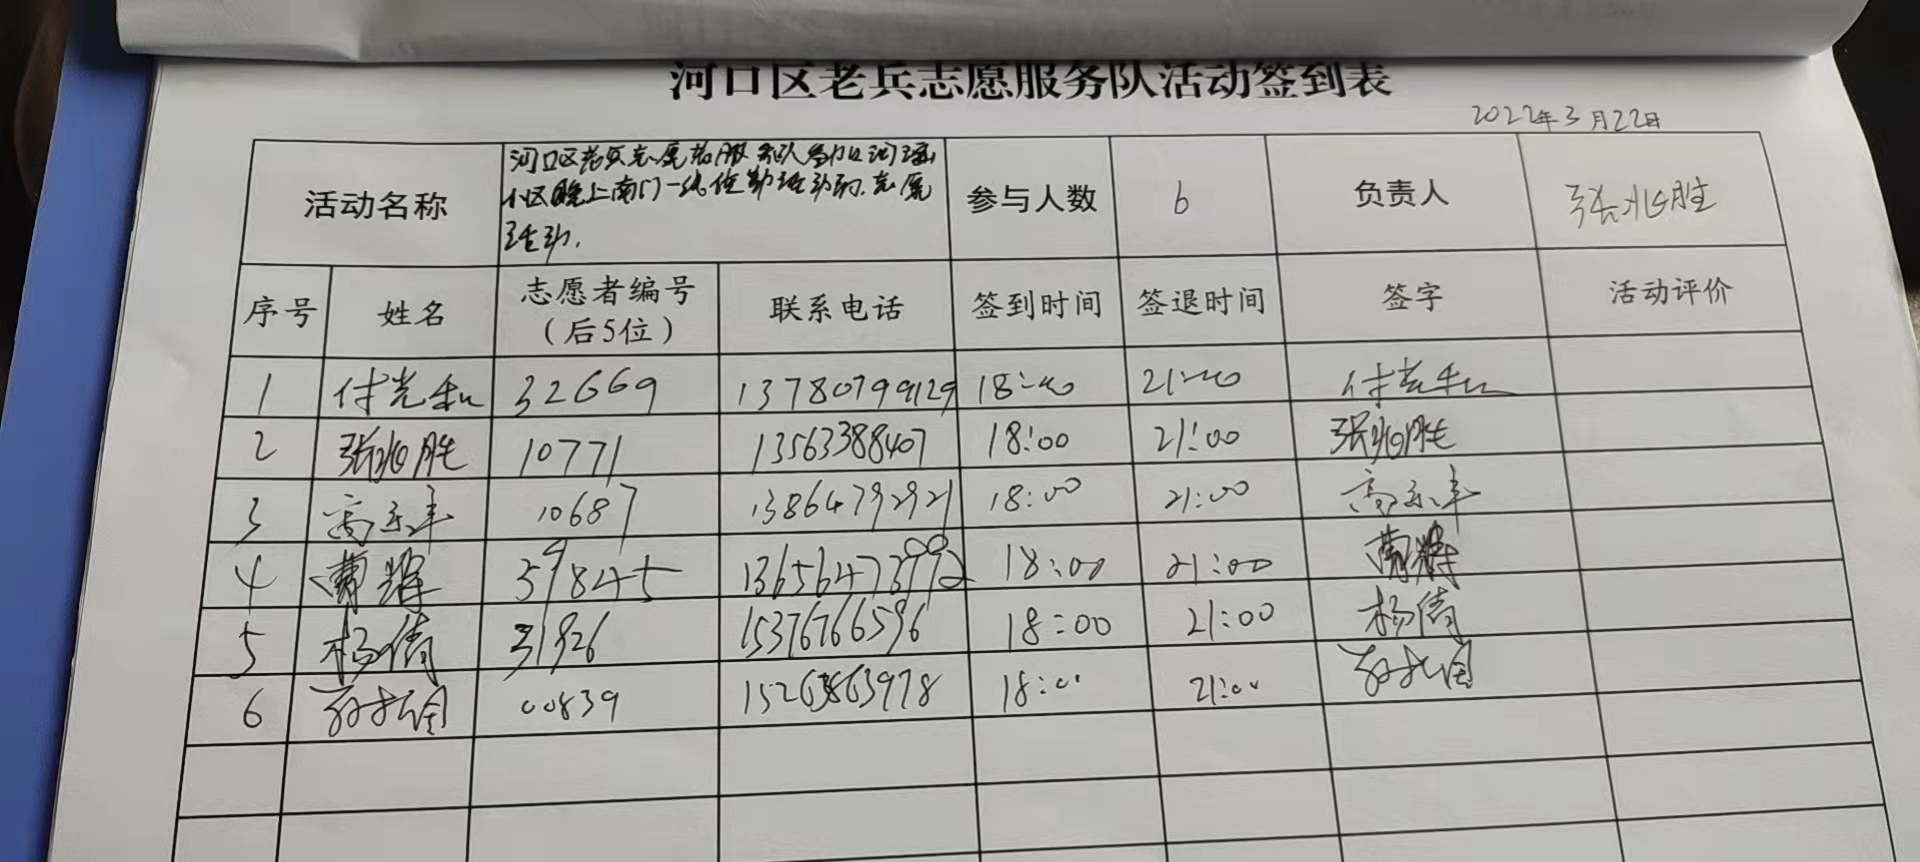 河口区老兵志愿服务队活动签到表
2022年3月22日
活动名称 河口区老兵志愿者服务队参加河滨
小区晚上南门一线值勤活动的志愿
活动. 参与人数 6 负责人 张兆胜
序号 姓名 志愿者编号（后5位） 联系电话 签到时间 签退时间 签字 活动评价
1 付光和 32669 13780799129 18:00 21:00 付光和
2 张兆胜 10771 13563388407 18:00 21:00 张兆胜
3 高东丰 10687 13864792921 18:00 21:00 高东丰
4 曹辉 39845 13656473992 18:00 21:00 曹辉
5 杨倩 31926 15376766596 18:00 21:00 杨倩
6 00839 15263863978 18:00 21:00